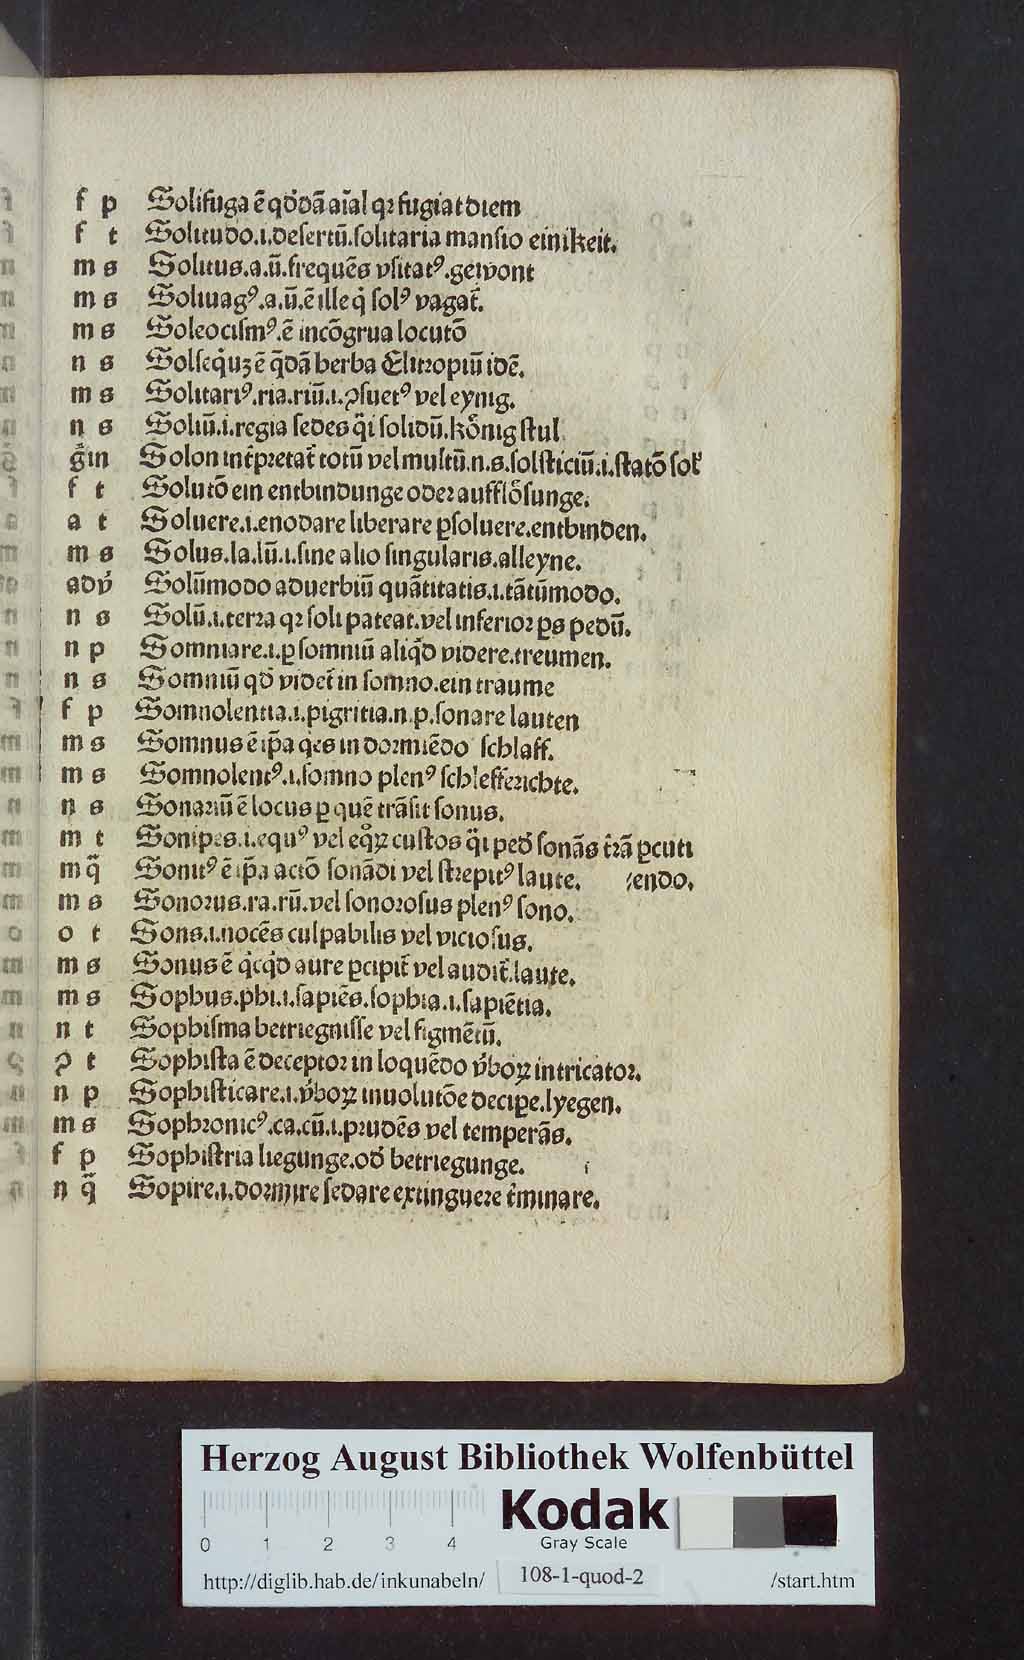 f p Solifuga ē qďdā aīal qꝛ fugiat diem
f t Solitudo.i.desertū.solitaria mansio einikeit.
m s Solitus.a.ū.frequēs vsitatꝰ.gewont
m s Soliuagꝰ.a.ū.ē ille q̇ solꝰ vagat̃.
m s Soleocismꝰ.ē incōgrua locutō
n s Solseq̇uꝫ ē q̄dā herba Elitropiū idē.
m s Solitariꝰ.ria.riū.i.ꝯsuetꝰ vel eynig.
n s Soliū.i.regia sedes q̄i solidū.koͤnig stul
g̃in Solon int̃pretat̃ totū vel multū.n.s.solsticiū.i.statō sol̕
f t Solutō ein entbindunge oder auffloͤsunge.
a t Soluere.i.enodare liberare ꝑsoluere.entbinden.
m s Solus.la.lū.i.sine alio singularis.alleyne.
adv̕ Solūmodo aduerbiū quātitatis.i.tātūmodo.
n s Solū.i.terra qꝛ soli pateat.vel inferior ꝑs pedū.
n p Somniare.i.ꝑ somniū aliq̇d videre.treumen.
n s Somniū qď videt̃ in somno.ein traume
f p Somnolentia.i.pigritia.n.p.sonare lauten
m s Somnus ē ip̄a q̇es in dormiēdo schlaff.
m s Somnolentꝰ.i.somno plenꝰ schlefferichte.
n s Sonariū ē locus ꝑ quē trāsit sonus.
m t Sonipes.i.equꝰ vel eqͦꝝ custos q̄i peď sonās t̃rā ꝑcuti
m q̄ Sonitꝰ ē ip̄a actō sonādi vel strepitꝰ laute. /endo.
m s Sonorus.ra.rū.vel sonorosus plenꝰ sono.
o t Sons.i.nocēs culpabilis vel viciosus.
m s Sonus ē q̇cq̇d aure ꝑcipit̃ vel audit̃.laute.
m s Sophus.phi.i.sapiēs.sophia.i.sapiētia.
n t Sophisma betriegnisse vel figmētū.
ꝯ t Sophista ē deceptor in loquēdo v̕boꝝ intricator.
n p Sophisticare.i.v̕boꝝ inuolutōe deciꝑe.lyegen.
m s Sophronicꝰ.ca.cū.i.prudēs vel temperās.
f p Sophistria liegunge.oď betriegunge.
n q̄ Sopire.i.dormire sedare extinguere t̃minare.
Herzog August Bibliothek Wolfenbüttel
Kodak
Gray Scale
0 1 2 3 4
http://diglib.hab.de/inkunabeln/ 108-1-quod-2 /start.htm